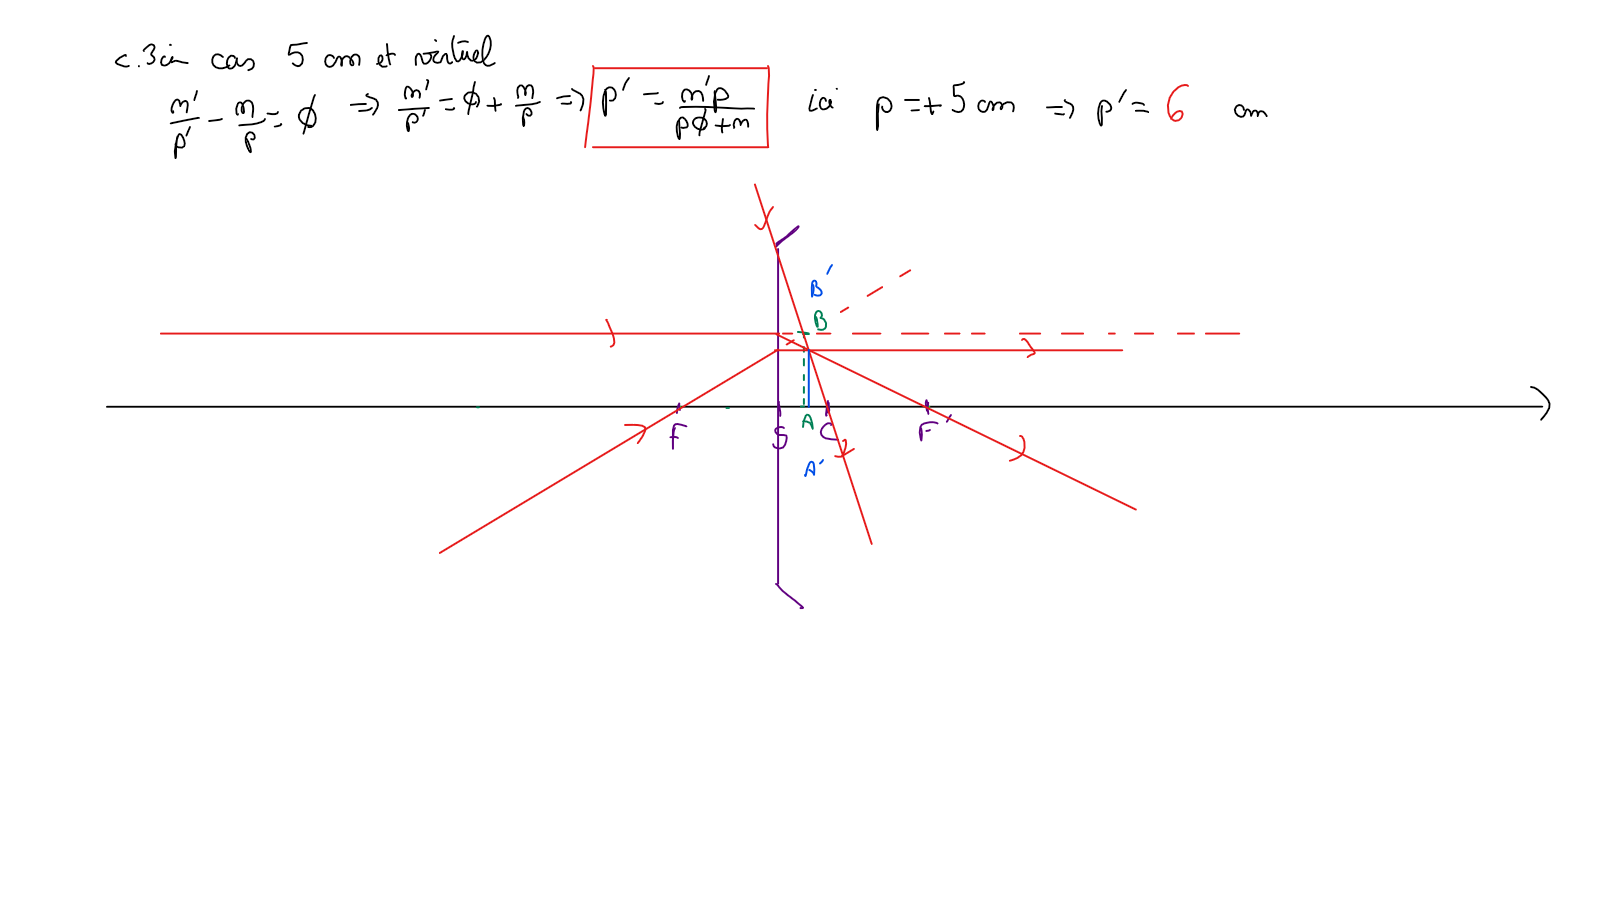 c. 3ie cas 5 cm et virtuel
n'/p' - n/p = φ => n'/p' = φ + n/p => p' = n'p/(pφ+n) ici p = +5 cm => p' = 6 cm
B'
B
F S A C F'
A'